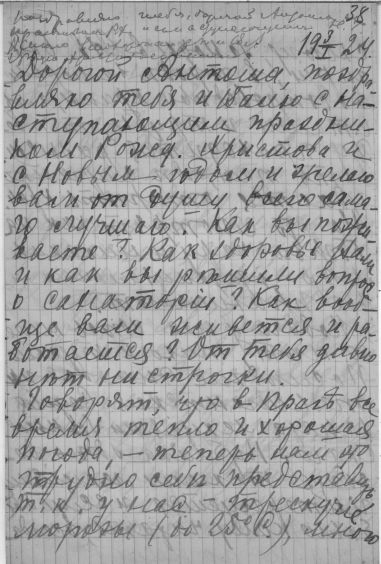 поздравляю тебя, дорогой
38.
19 3/I 24.
Дорогой Антоша, поздра-
вляю тебя и Валю с на-
ступающим праздни-
ком Рожд. Христова и
с Новым годом и желаю
вам от души всего само-
го лучшаго. Как вы пожи-
ваете? Как здоровье Вали
и как вы решили вопрос
о санаторіи? Как вооб-
ще вам живется и ра-
ботается? От тебя давно
нѣт ни строчки.
Говорят, что в Прагѣ все
время тепло и хорошая
погода, – теперь нам это
трудно себѣ представить
т. к. у нас – трескучіе
морозы (до 25° С), много